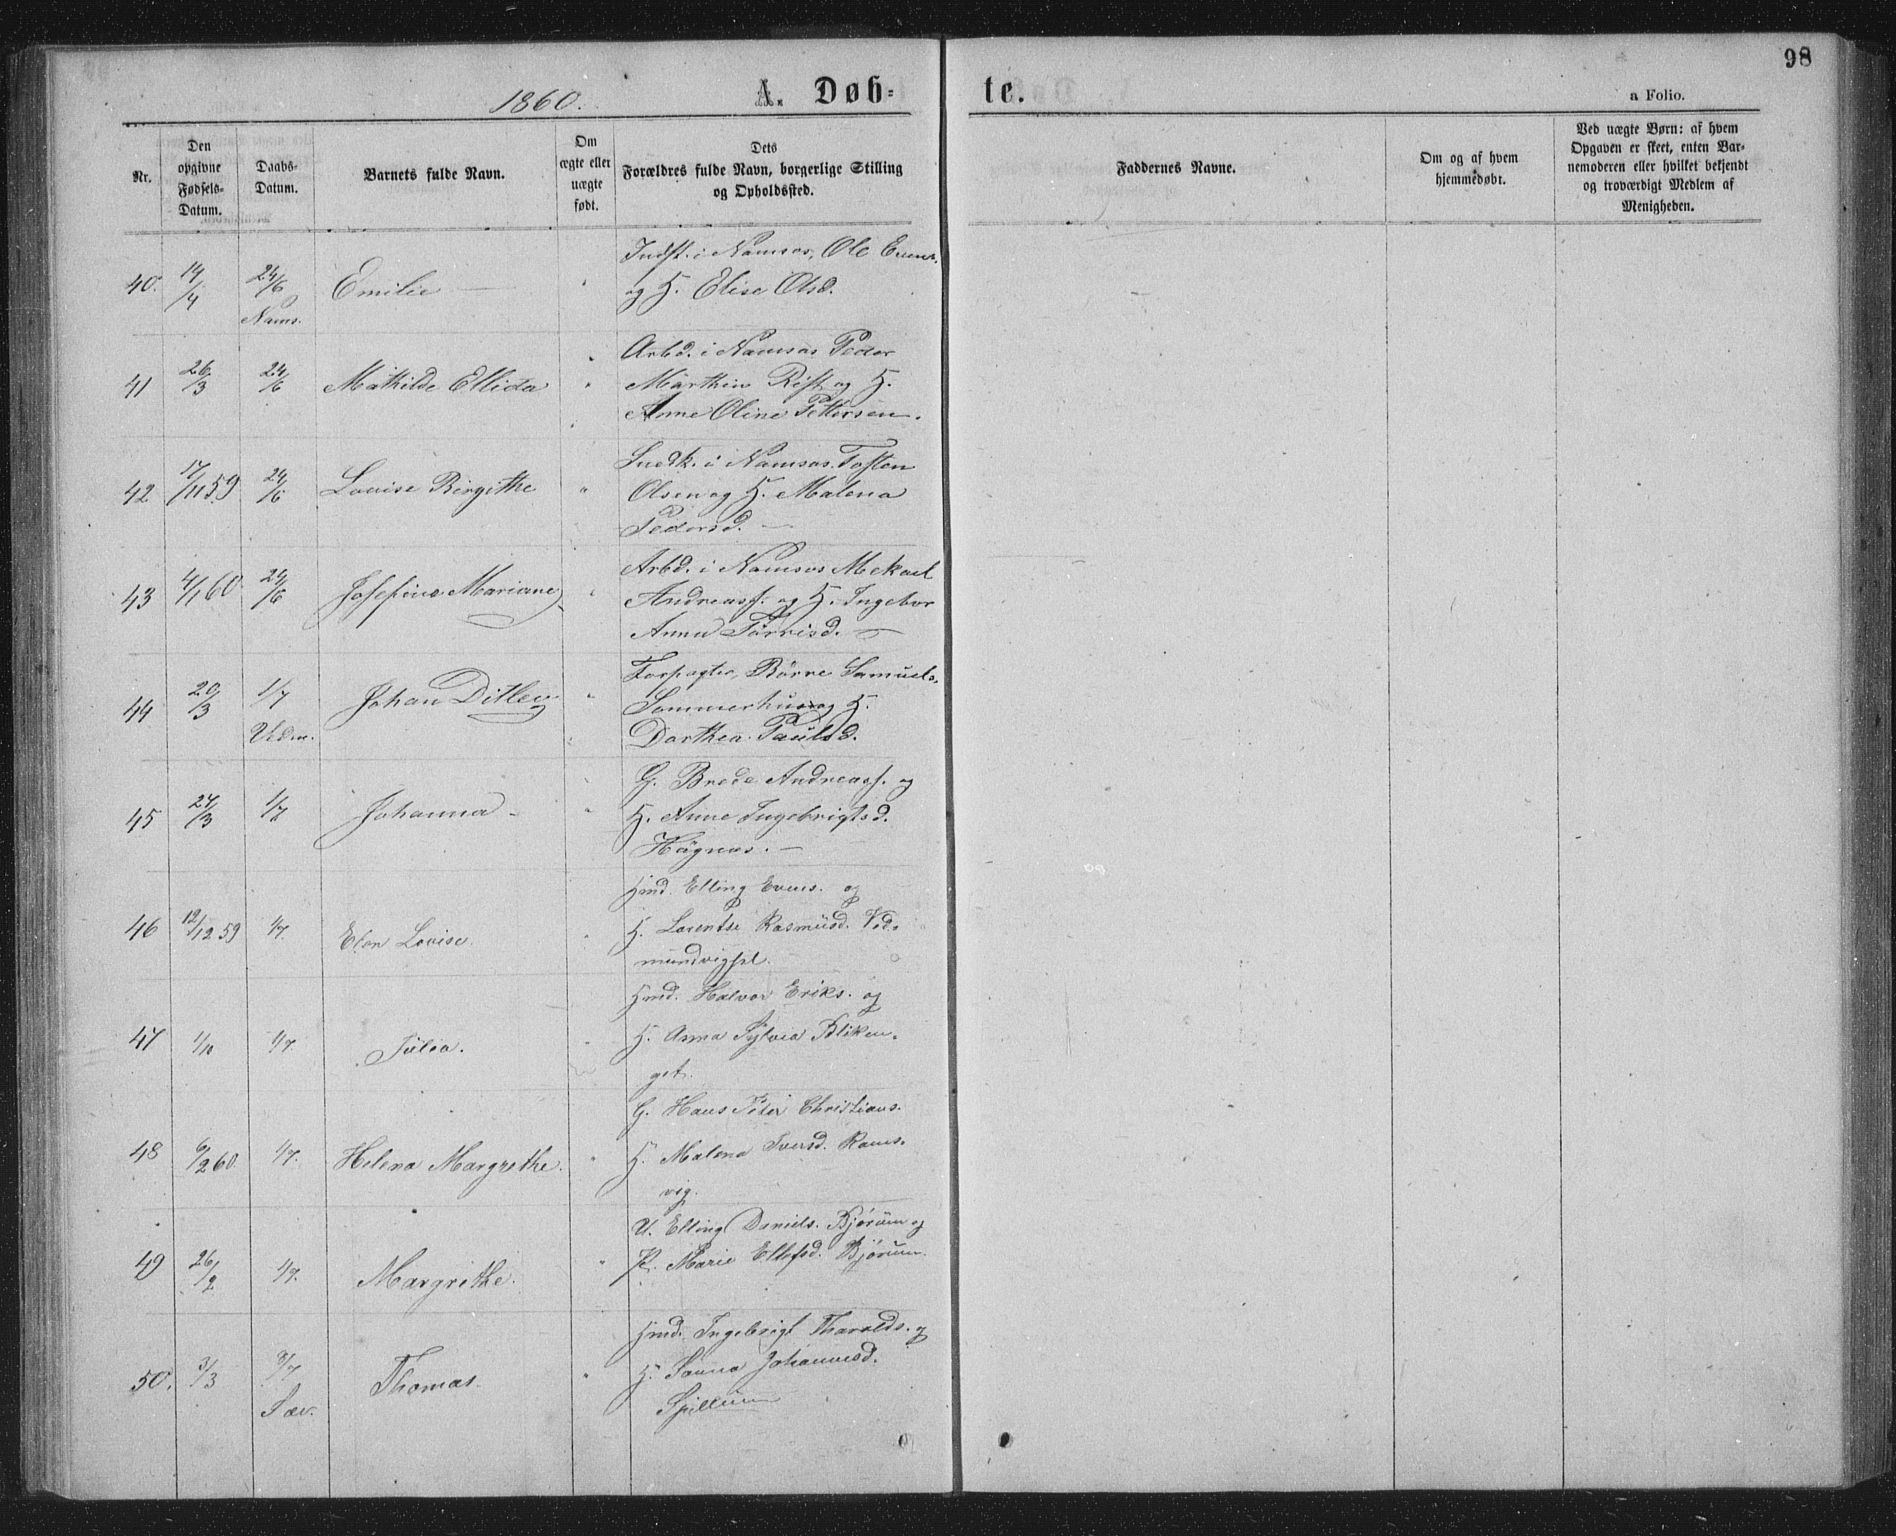 98
1860.
A. Døb=
te.
a Folio.
Nr.
Den
opgivne
Fødsels-
Datum.
Daabs-
Datum.
Barnets fulde Navn.
Om
ægte eller
uægte
født.
Dets
Forældres fulde Navn, borgerlige Stilling
og Opholdssted.
Faddernes Navne.
Om og af hvem
hjemmedøbt.
Ved uægte Børn: af hvem
Opgaven er skeet, enten Bar-
nemoderen eller hvilket bekjendt
og troværdigt Medlem af
Menigheden.
40. 14/4 24/6 Emilie " Indst. i Namsos, Ole Evens.
Nams. og H. Elise Olsd.
41 26/3 24/6 Mathilde Ellida " Arbd. i Namsos Peder
Marthin Rist og H.
Anne Oline Pettersen.
42 17/11 59 24/6 Lovise Birgithe " Snedk. i Namsos Tosten
Olsen og H. Malena
Pedersd.
43 4/1 60 24/6 Josefine Mariane " Arbd. i Namsos Mekael
Andreass. og H. Ingebor
Anna Torrisd.
44 20/3 1/7 Johan Ditlev " Forpagter, Børre Samuels.
Vedm. Sommerhus og H.
Dorthea Paulsd.
45 27/3 1/7 Johanna " G. Brede Andreass. og
H. Anne Ingebrigtsd.
Høgnes.
46 12/12 59 1/7. Elen Lovise. " Hmd. Elling Evens. og
H. Lorentse Rasmusd. Ved-
mundvigsel.
47 1/10 1/7. Julia. " Hmd. Halvor Eriks. og
H. Anna Sylvia Bliken-
get.
48 6/2 60. 1/7. Helena Margrethe. " G. Hans Peter Christians.
H. Malena Iversd. Rams-
vig.
49 26/2 1/7. Margrethe. " U. Elling Daniels. Bjørum og
P. Marie Ellefsd. Bjørum.
50. 3/3 8/7 Thomas. " Hmd. Ingebrigt Tharalds. og
Sæv. H. Sanna Johannesd.
Spillum